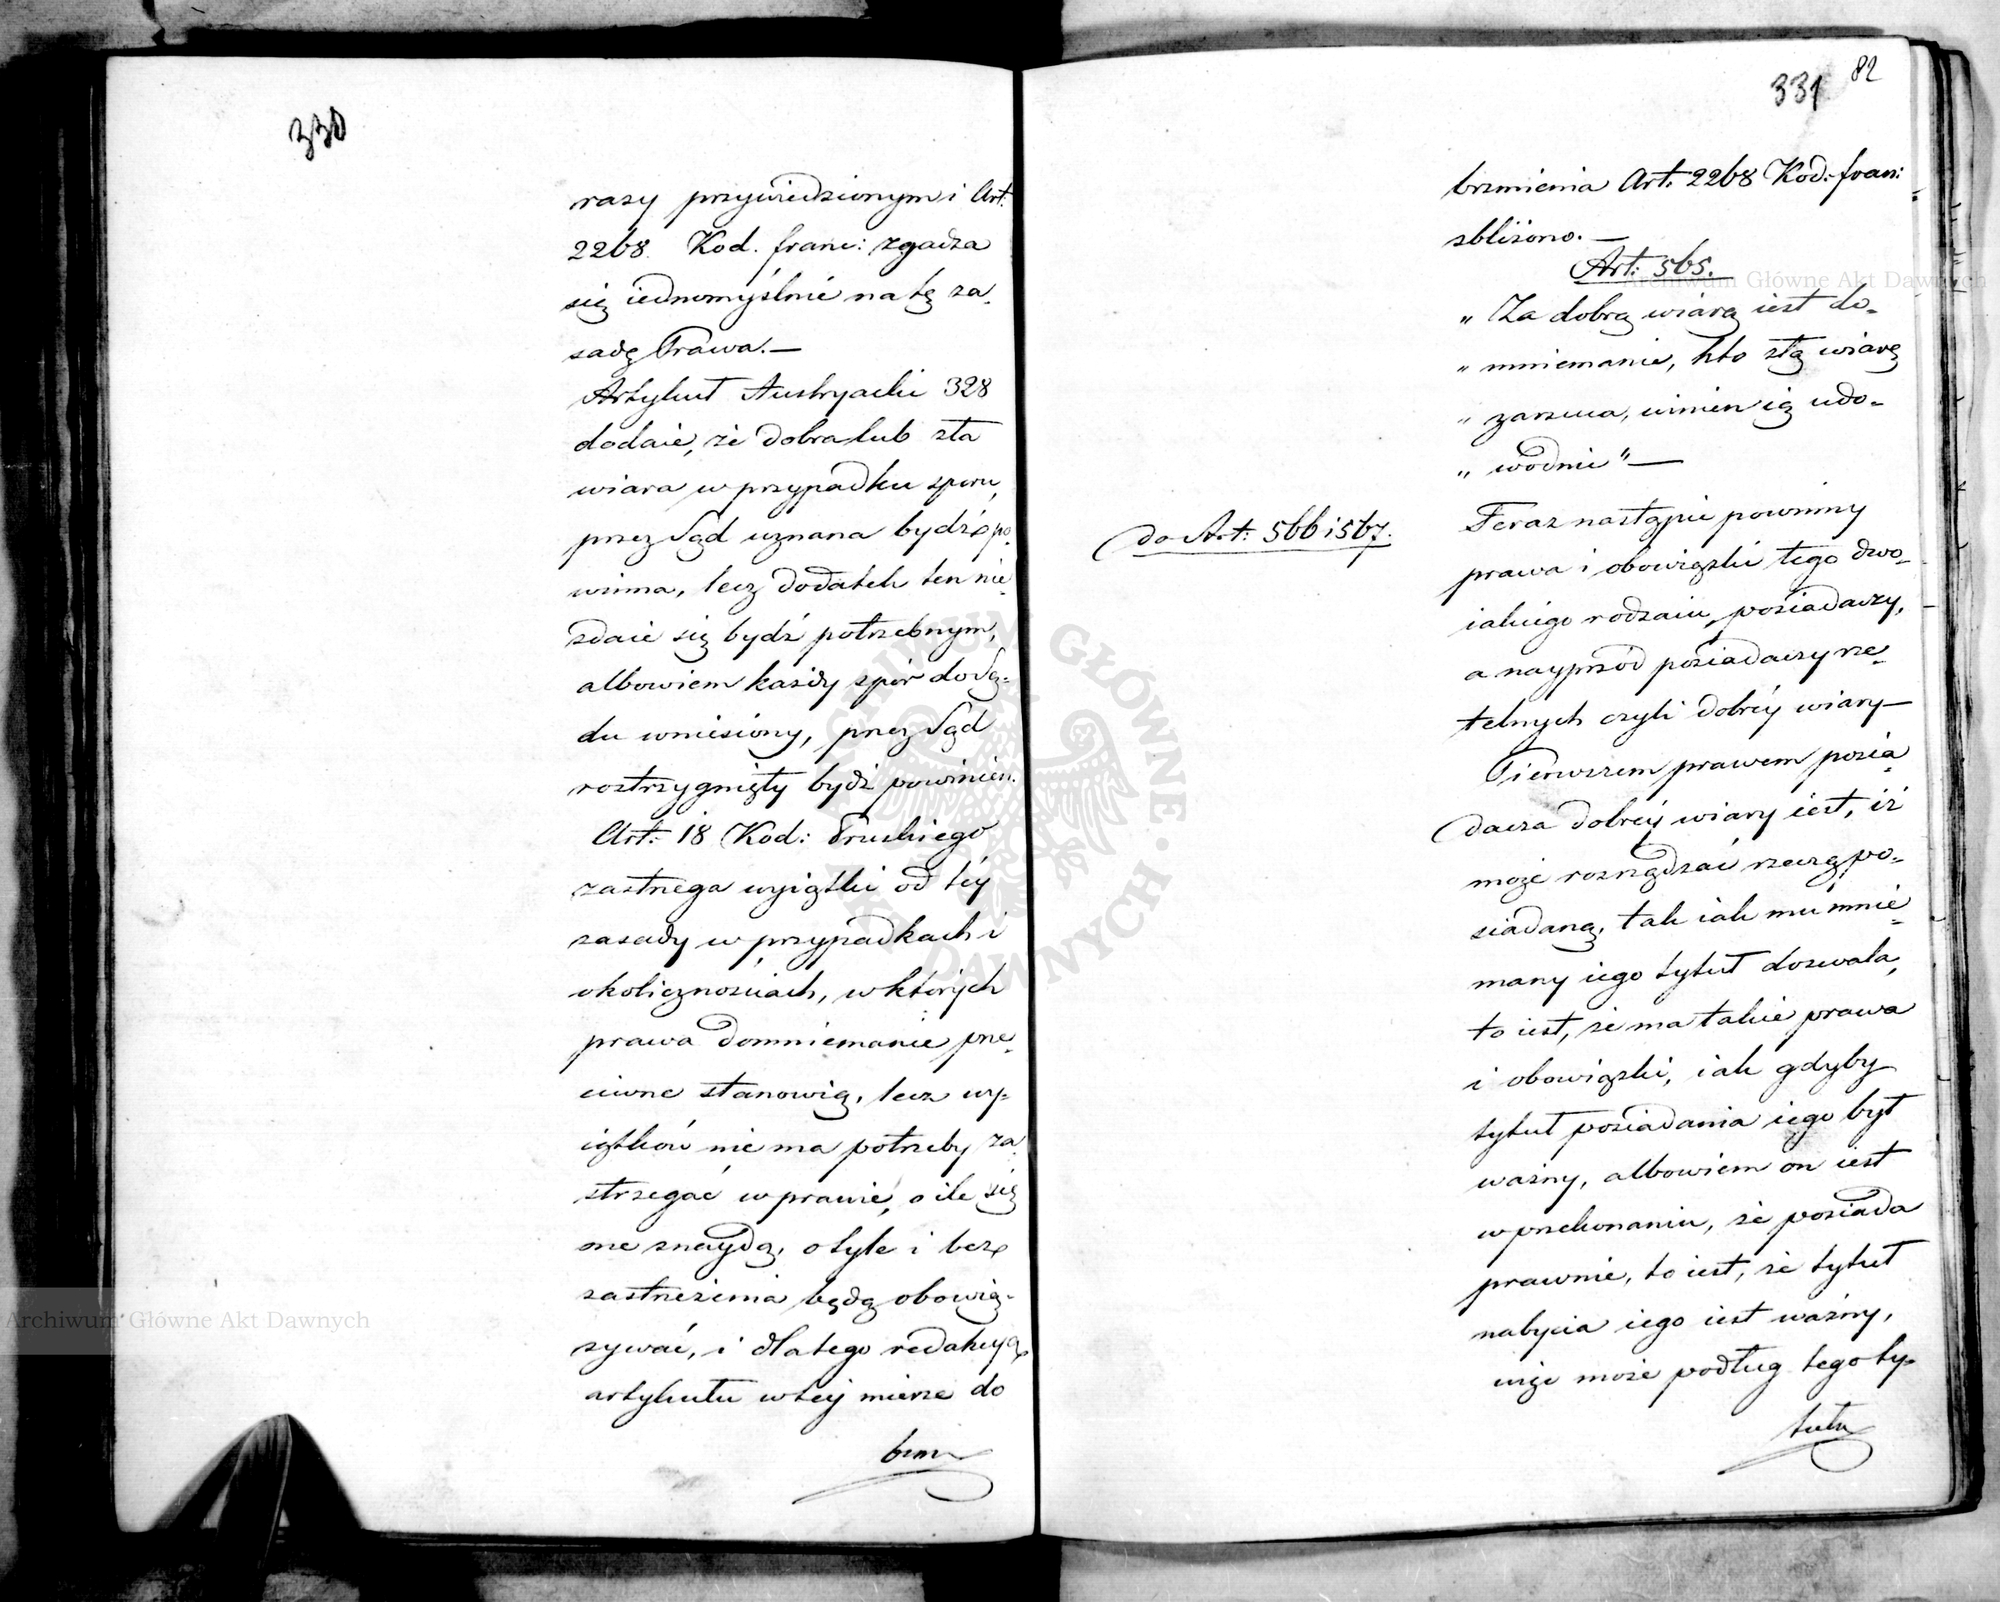 330
razy przywiedzionym i Art:
2268. Kod. franc: zgadza
się iednomyślnie na tę za-
sadę Prawa.—
Artykuł Austryacki 328
dodaie, że dobra lub zła
wiara w przypadku sporu,
przez Sąd uznana bydź po-
winna, lecz dodatek ten nie
zdaie się bydź potrzebnym,
albowiem każdy spór do Są-
du wniesiony, przez Sąd
roztrzygnięty bydź powinien.
Art: 18 Kod: Pruskiego
zastrzega wyiątki od téy
zasady w przypadkach i
okolicznościach, w których
prawa domniemanie prze-
ciwne stanowią, lecz wy-
iątków nie ma potrzeby za-
strzegać w prawie, o ile się
one znaydą, o tyle i bez
zastrzeżenia będą obowią-
zywać, i dlatego redakcya
artykułu w téy mierze do
brzm
331 82
brzmienia Art: 2268 Kod: fran:
zbliżono.—
Art: 565.
„ Za dobrą wiarą iest do-
„ mniemanie, kto złą wiarę
„ zarzuca, winien ią udo-
„ wodnić"—
do Art: 566 i 567.
Teraz nastąpić powinny
prawa i obowiązki tego dwo-
iakiego rodzaiu posiadaczy,
a nayprzód posiadaczy rze-
telnych czyli dobréy wiary—
Pierwszem prawem posia-
dacza dobréy wiary iest, iż
może rozrządzać rzeczą po-
siadaną, tak iak mu mnie-
many iego tytuł dozwala,
to iest, że ma takie prawa
i obowiązki, iak gdyby
tytuł posiadania iego był
ważny, albowiem on iest
w przekonaniu, że posiada
prawnie, to iest, że tytuł
nabycia iego iest ważny,
więc może podług tego ty-
tułu
Archiwum Główne Akt Dawnych
Archiwum Główne Akt Dawnych
ARCHIWUM GŁÓWNE AKT DAWNYCH